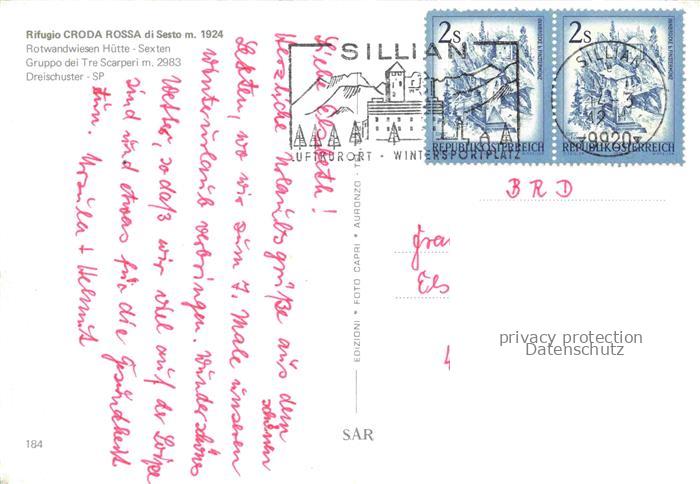 Rifugio CRODA ROSSA di Sesto m. 1924
Rotwandwiesen Hütte - Sexten
Gruppo dei Tre Scarperi m. 2983
Dreischuster - SP
Liebe Elsbeth!
Herzliche Urlaubsgrüße aus dem
schönen
Sexten, wo wir zum 7. Male unseren
Winterurlaub verbringen. Wunderschönes
Wetter, so daß wir viel auf der Loipe
sind und etwas für die Gesundheit
tun. Ursula + Helmut
184
EDIZIONI * FOTO CAPRI * AURONZO - 
SAR
SILLIAN
LUFTKURORT - WINTERSPORTPLATZ
2s
REPUBLIK ÖSTERREICH
2s
REPUBLIK ÖSTERREICH
SILLIAN
9920
BRD
Frau
Els
privacy protection
Datenschutz